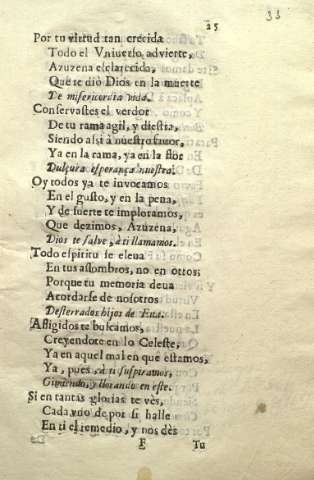 33
25
Por tu virtud tan crecida
Todo el Vniuerso advierte,
Azuzena esclarecida,
Que te diò Dios en la muerte
De misericordia vida.
Conservastes el verdor
De tu rama agil, y diestra,
Siendo assi à nuestro favor,
Ya en la rama, ya en la flor
Dulçura esperança nuestra.
Oy todos ya te invocamos
En el gusto, y en la pena,
Y de suerte te imploramos,
Que dezimos, Azuzena,
Dios te salve, à ti llamamos.
Todo espiritu se eleua
En tus assombros, no en otros;
Porque tu memoria deua
Acordarse de nosotros
Desterrados hijos de Eua.
Afligidos te buscamos,
Creyendote en lo Celeste,
Ya en aquel mal en que estamos,
Ya, pues, à ti suspiramos,
Gimiendo, y llorando en este.
Si en tantas glorias te vès,
Cada vno de por si halle
En ti el remedio, y nos dès
E Tu